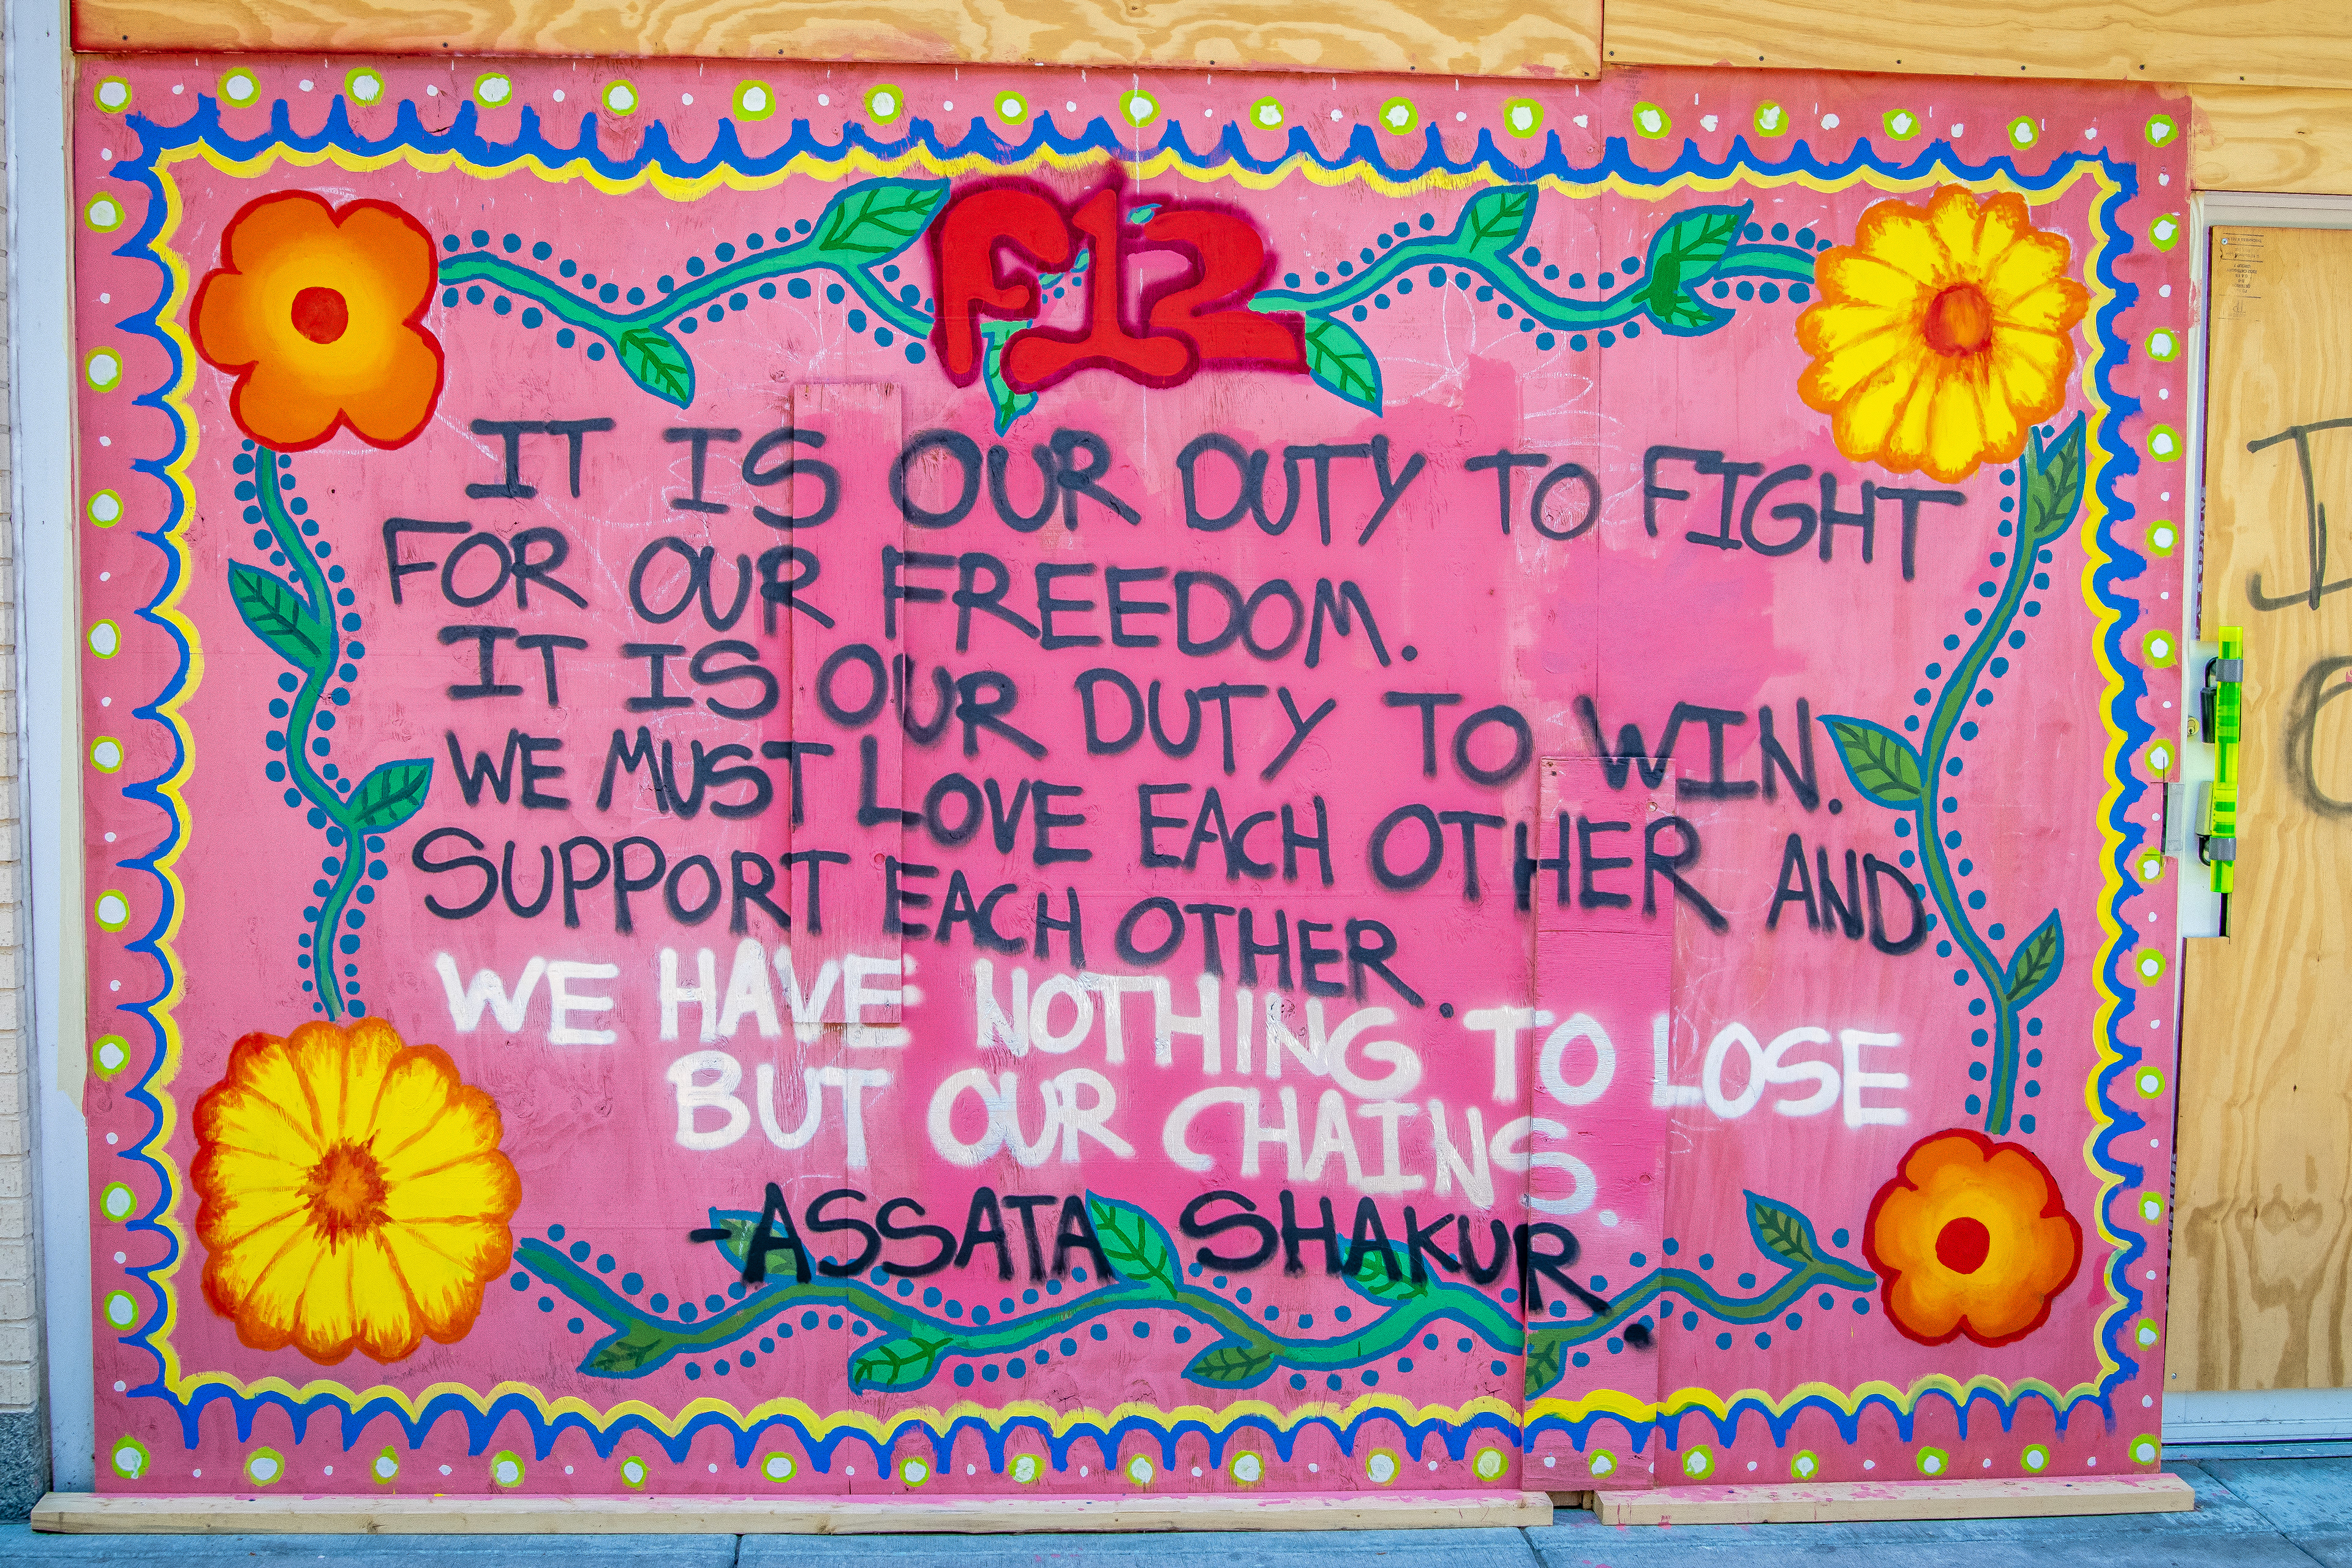 F12
IT IS OUR DUTY TO FIGHT
FOR OUR FREEDOM.
IT IS OUR DUTY TO WIN.
WE MUST LOVE EACH OTHER AND
SUPPORT EACH OTHER.
WE HAVE NOTHING TO LOSE
BUT OUR CHAINS.
-ASSATA SHAKUR